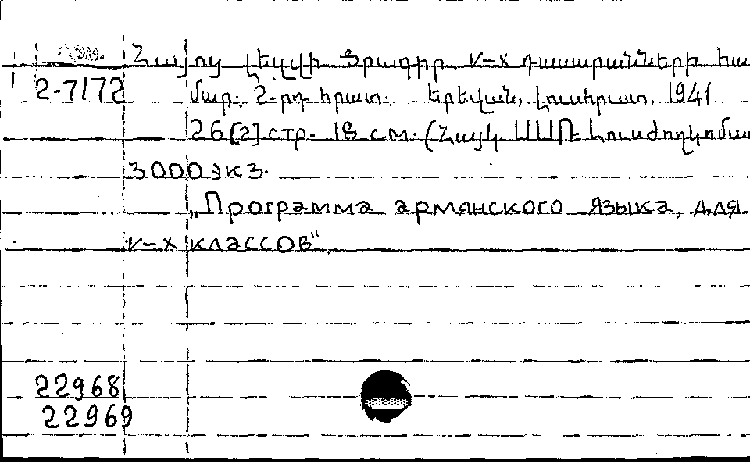 Հայոց լեզվի ծրագիր V-X դասարանների հա
2-7172 մար. 2-րդ հրատ. Երևան, Լուսհրատ, 1941
26 [2] стр. 18 см. (Հայկ ՍՍՌ Լուսժողկոմատ
3000 экз.
„Программа армянского языка, для
V-X классов“.
22968
22969